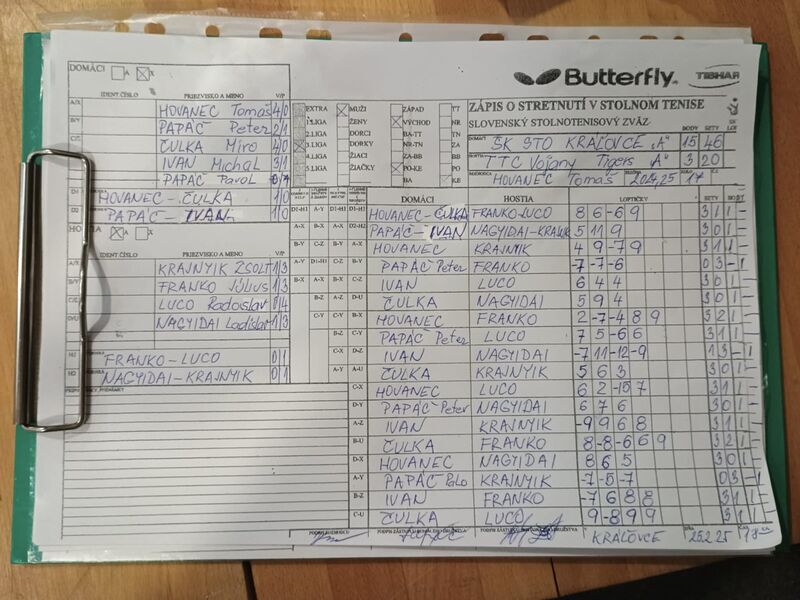 DOMÁCI A X
Butterfly TIBHAR
IDENT ČÍSLO PRIEZVISKO A MENO V/P
ZÁPIS O STRETNUTÍ V STOLNOM TENISE
SLOVENSKÝ STOLNOTENISOVÝ ZVÄZ
A/X HOVANEC Tomáš 4/0
B/Y PAPÁČ Peter 2/1
C/Z ČULKA Miro 4/0
IVAN Michal 3/1
PAPÁČ Pavol 0/1
D1 HOVANEC-ČULKA 1/0
D2 PAPÁČ-IVAN 1/0
EXTRA MUŽI ZÁPAD TT
1.LIGA ŽENY VÝCHOD NR
2.LIGA DORCI BA-TT TN
3.LIGA DORKY NR-TN ZA
4.LIGA ŽIACI ZA-BB BB
5.LIGA ŽIAČKY PO-KE PO
BA KE
DOMÁCI ŠK STO KRÁĽOVCE "A" BODY 15 SETY 46
HOSTIA TTC Vojany Tigers "A" 3 20
HOVANEC Tomáš 2024/25 17
HOSTIA A X
IDENT ČÍSLO PRIEZVISKO A MENO V/P
KRAJNYIK ZSOLT 1/3
FRANKO Július 1/3
LUCO Radoslav 0/4
NAGYIDAI Ladislav 1/3
FRANKO-LUCO 0/1
NAGYIDAI-KRAJNYIK 0/1
DOMÁCI HOSTIA LOPTIČKY SETY
HOVANEC-ČULKA FRANKO-LUCO 8 6 -6 9 3 1 1
PAPÁČ-IVAN NAGYIDAI-KRAJNYIK 5 11 9 3 0 1
HOVANEC KRAJNYIK 4 9 -7 9 3 1 1
PAPÁČ Peter FRANKO -7 -7 -6 0 3 - 1
IVAN LUCO 6 4 4 3 0 1
ČULKA NAGYIDAI 5 9 4 3 0 1
HOVANEC FRANKO 2 -7 -4 8 9 3 2 1
PAPÁČ Peter LUCO 7 5 -6 6 3 1 1
IVAN NAGYIDAI -7 11 -12 -9 1 3 - 1
ČULKA KRAJNYIK 5 6 3 3 0 1
HOVANEC LUCO 6 2 -15 7 3 1 1
PAPÁČ Peter NAGYIDAI 6 7 6 3 0 1
IVAN KRAJNYIK -9 9 6 8 3 1 1
ČULKA FRANKO 8 -8 -6 6 9 3 2 1
HOVANEC NAGYIDAI 8 6 5 3 0 1
PAPÁČ Palo KRAJNYIK -7 -5 -7 0 3 - 1
IVAN FRANKO -7 6 8 8 3 1 1
ČULKA LUCO 9 -8 9 9 3 1 1
PAPÁČ
KRÁĽOVCE 25.2.25